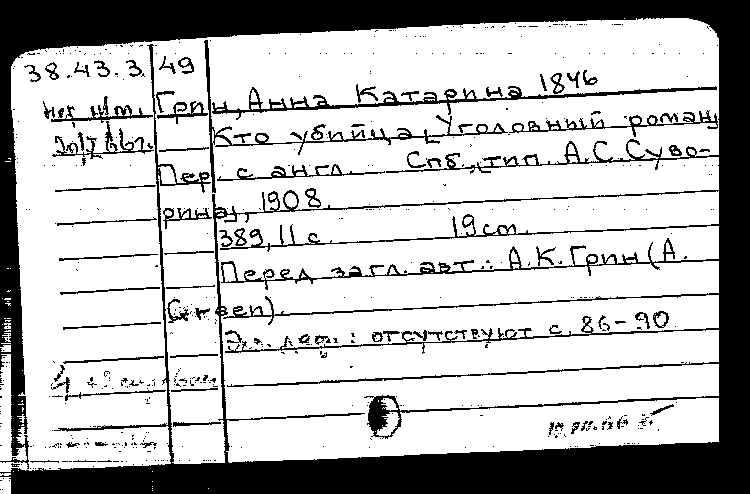 38.43.3 49
Грин, Анна Катарина 1846
Кто убийца[Уголовный роман]
Пер. с англ. Спб., тип. А.С.Суво-
рина, 1908.
389, II с. 19 cm.
Перед загл. авт.: А.К.Грин (А.
Green).
Экз. деф.: отсутствуют с. 86-90